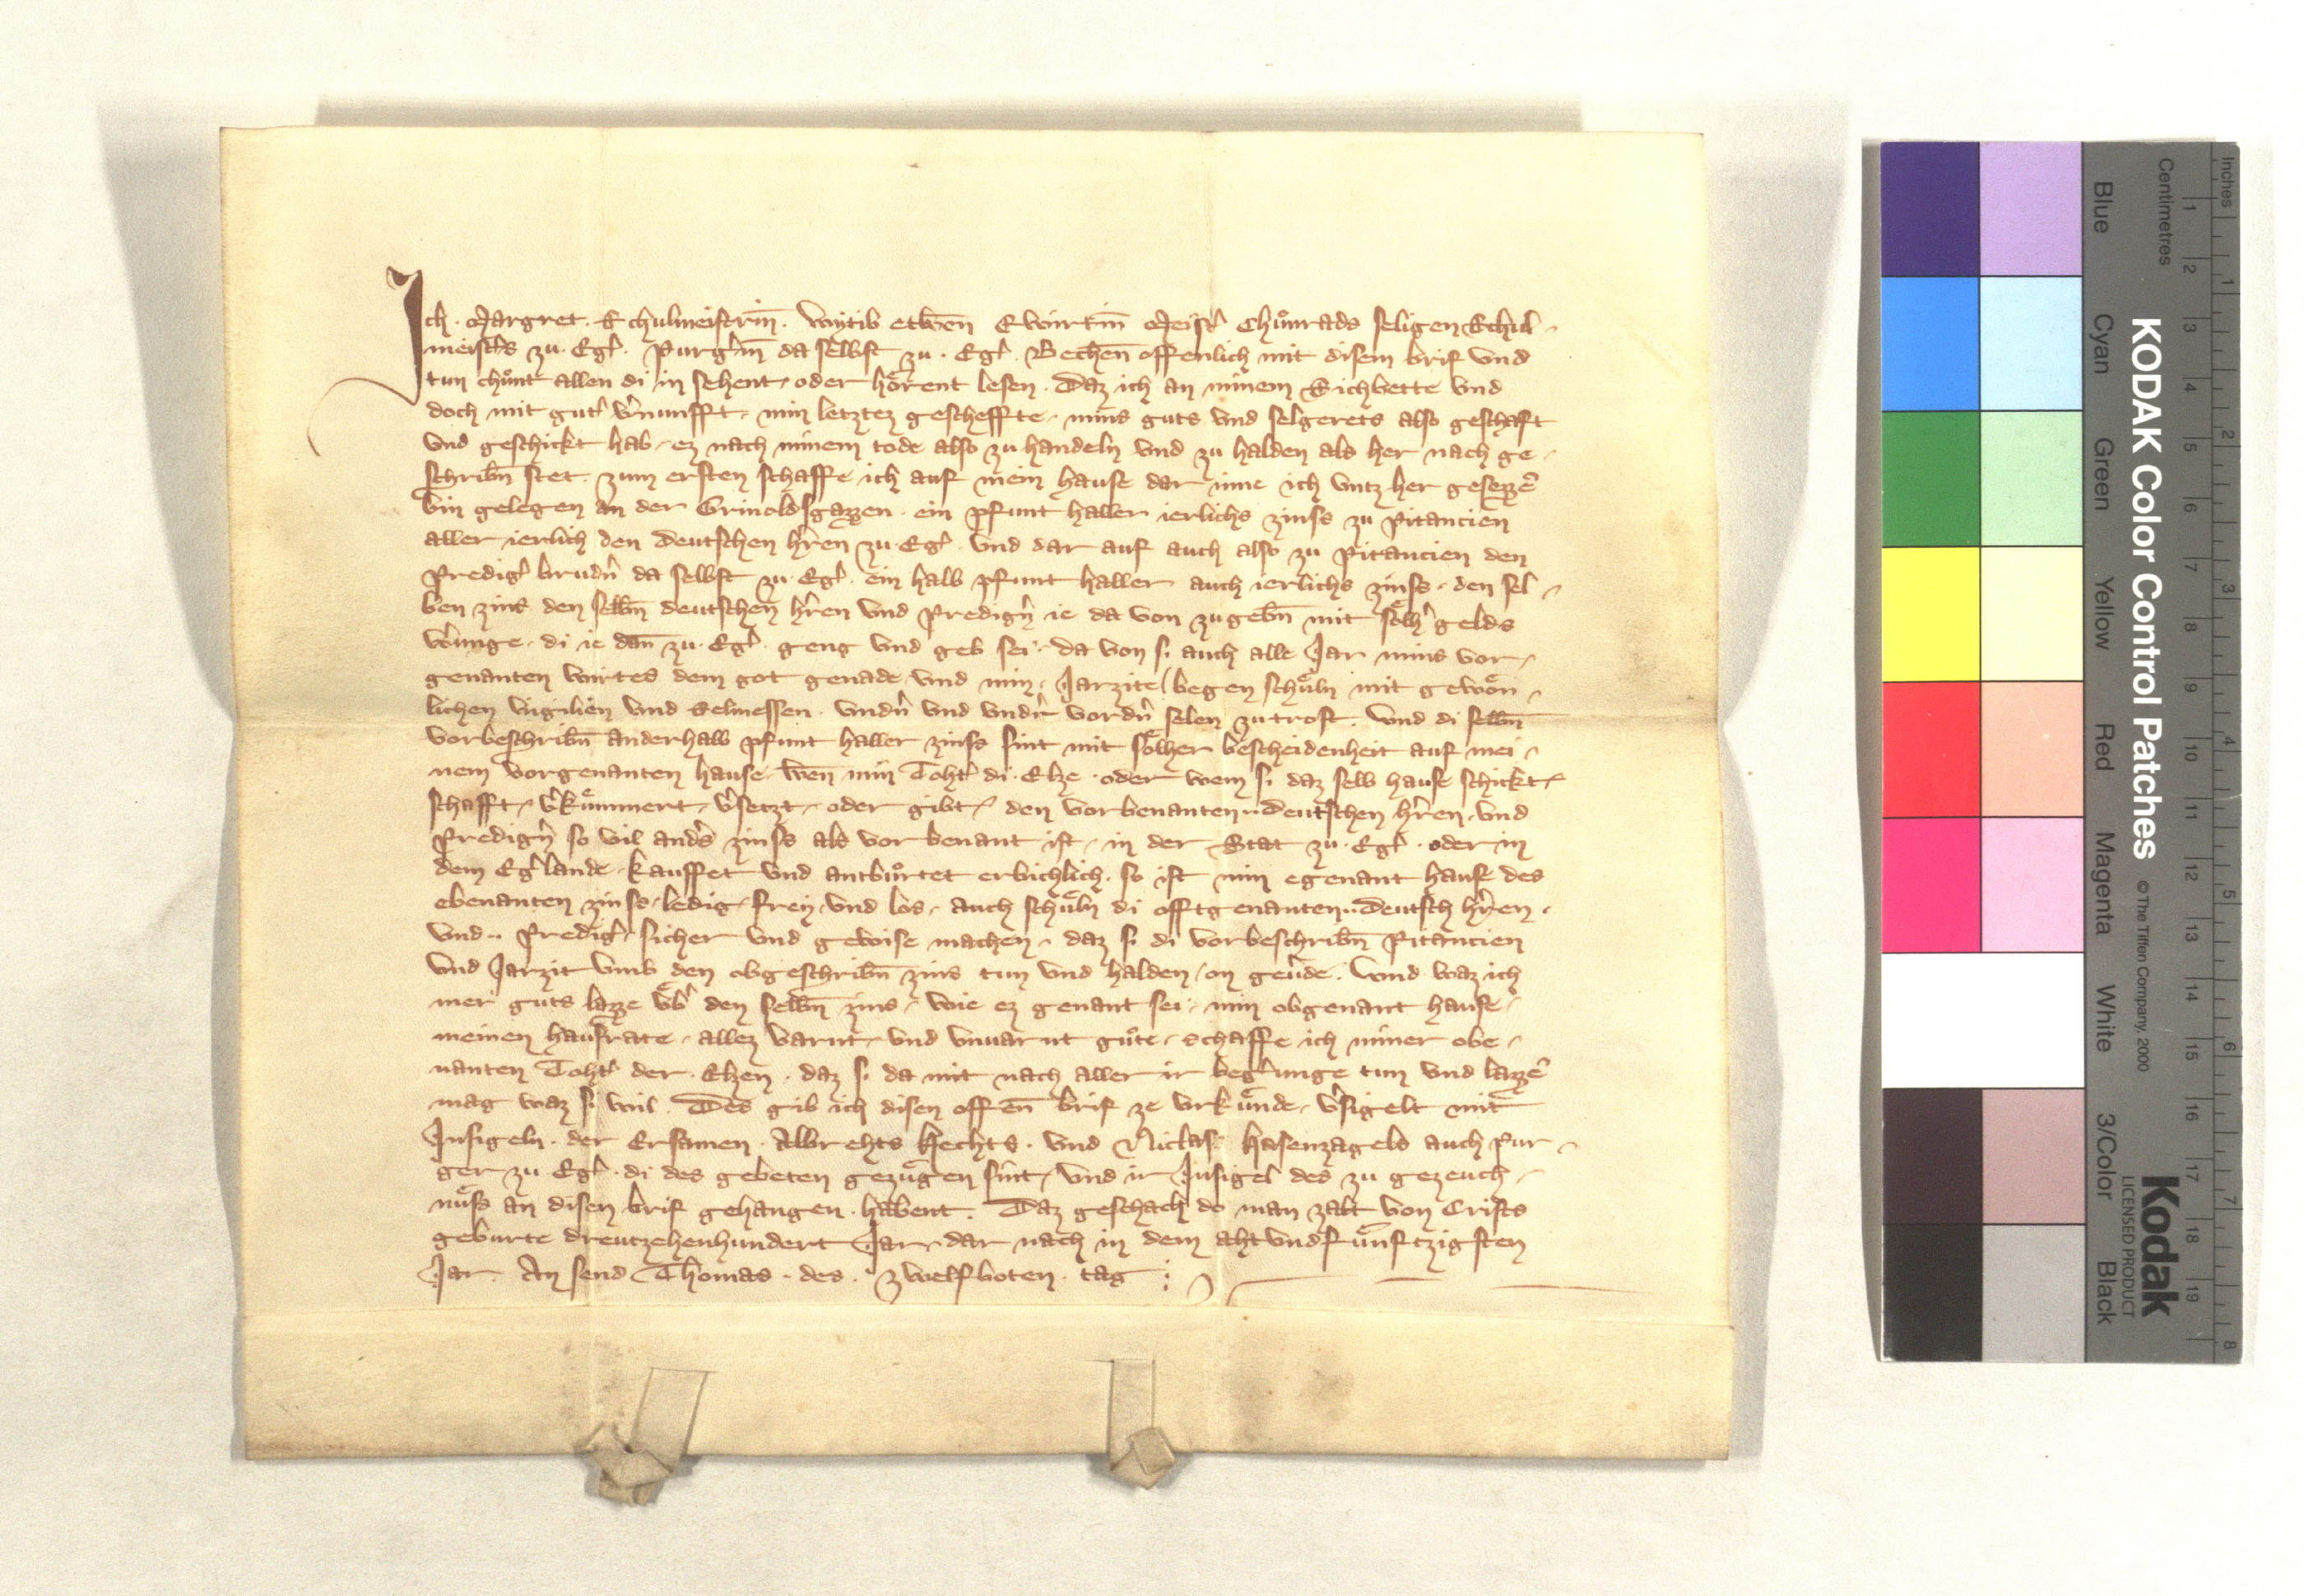 Ich · Margret · Schulmeistrin̄ · Wytib etwen̄ Ewirtin̄ Meist͛ Chůnrads seligen Schul-
meist͛s zu · Eg͛ · Purg͛in̄ da selbst zu · Eg͛ · Bechen̄ offenlich mit disem brif vnd
tun chůnt allen di in sehent · oder hörent lesen · Daz ich an minem Sichbette vnd
doch mit gut͛ v͛nunfft · min letztez gescheffte · mins guts vnd selgerets also geschaft
vnd geschickt hab · ez nach minem tode also zu handeln vnd zu halden als her nach ge-
schribn̄ stet · zum ersten schaffe ich auf mein hause dar inne ich vntz her gesezzē
bin gelegen an der Grinoldsgazzen · ein pfunt haller ierlichs zinss zu Pitancien
aller ierlich den deutschen h͛ren zu · Eg͛ · vnd dar auf auch also zu Pitancien den
Predig͛ brud͛n da selbst zu · Eg͛ · ein halb pfunt haller auch ierlichs zinss · den sel-
ben zins den selbn̄ deutschen h͛ren vnd Predig͛n ie da von zu gebn̄ mit sölh͛ gelds
w͛unge · di ie dan̄ zu · Eg͛ · geng vnd geb sei · da von si auch alle Jar mins vor-
genanten wirtes dem got genade vnd min · Jarzite begen schüln mit gewön-
lichen vigilien vnd Selmessen · vnd͛n vnd vnd͛r vord͛n selen zu trost · vnd di selbn̄
vorbeschribn̄ anderhalb pfunt haller zinss sint mit sölher bescheidenheit auf mei-
nem vorgenanten hause · wen̄ min Toht͛ di · Else · oder wem si daz selb hause schickt ·
schafft · v͛kümmert · v͛setzt · oder gibt · den vorbenanten ·· deutschen h͛ren · vnd
Predig͛n so vil and͛s zinss als vorbenant ist · in der Stat zu · Eg͛ · oder in
dem Eg͛lande · kauffet vnd antwůrtet erbichlich · so ist min egenant hause des
ebenanten zinss · ledig · frey · vnd los · auch schüln di offtgenanten ·· deutsch h͛ren ·
vnd ·· Predig͛ · sicher vnd gewise machen · daz si di vorbeschribn̄ Pitancien
vnd Jarzit vmb den obgeschribn̄ zins tun vnd halden · on geu͛de · vnd waz ich
mer guts lazze üb͛ den selbn̄ zins · wie ez genant sei · min obgenant hause ·
meinen hausrate · allez varnt · vnd vnuarnt gůte · schaffe ich miner obe-
nanten Toht͛ der · Elsen · daz si da mit nach aller ir beg͛unge tun vnd lazzē
mag waz si wil · Des gib ich disen offen̄ brif ze vrkünde · v͛sigelt mit
Insigeln · der Ersamen · Albrehts hechts · vnd Niclas · hasenzagels auch Pur-
ger zu Eg͛ · di des gebeten gezügen sint · vnd ir Insigel des zu gezeuch-
nüss an disen brif gehangen · habent · Daz geschach do man zalt von Crists
geburte dreutzehenhundert Jar · dar nach in dem ahtvndfünftzigsten
Jar · An send Thomas · des · zwelfboten · tag :
Inches
Centimetres
1 2 3 4 5 6 7 8
1 2 3 4 5 6 7 8 9 10 11 12 13 14 15 16 17 18 19
KODAK Color Control Patches
© The Tiffen Company, 2000
Kodak
LICENSED PRODUCT
Blue Cyan Green Yellow Red Magenta White 3/Color Black